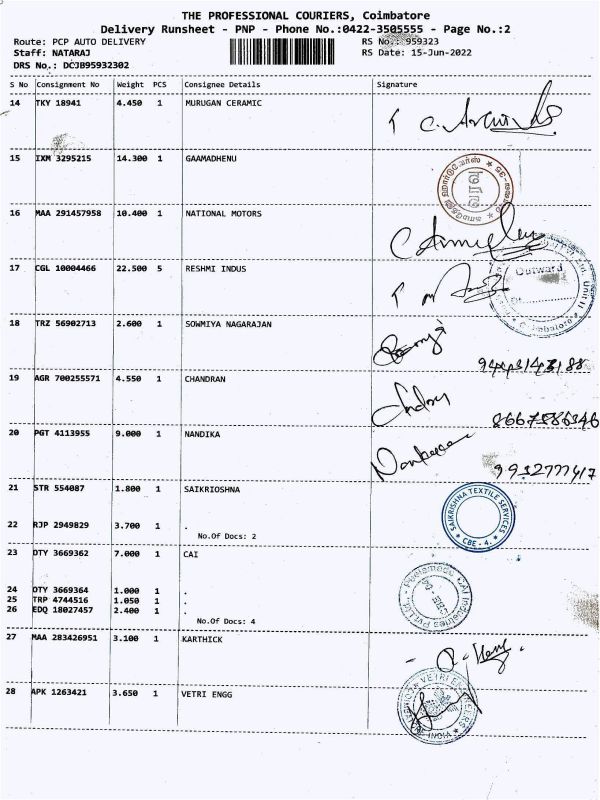 THE PROFESSIONAL COURIERS, Coimbatore
Delivery Runsheet - PNP - Phone No.:0422-3505555 - Page No.:2
Route: PCP AUTO DELIVERY RS No.: 959323
Staff: NATARAJ RS Date: 15-Jun-2022
DRS No.: DCJB95932302
S No Consignment No Weight PCS Consignee Details Signature
14 TKY 18941 4.450 1 MURUGAN CERAMIC
15 IXM 3295215 14.300 1 GAAMADHENU
16 MAA 291457958 10.400 1 NATIONAL MOTORS
17 CGL 10004466 22.500 5 RESHMI INDUS
Outward
Unit II
Coimbatore
18 TRZ 56902713 2.600 1 SOWMIYA NAGARAJAN
19 AGR 700255571 4.550 1 CHANDRAN
8667586346
20 PGT 4113955 9.000 1 NANDIKA
21 STR 554087 1.800 1 SAIKRIOSHNA
SAIKRISHNA TEXTILE SERVICES
* CBE - 4. *
22 RJP 2949829 3.700 1 .
No.Of Docs: 2
23 OTY 3669362 7.000 1 CAI
CAI Industries Pvt Ltd
24 OTY 3669364 1.000 1 .
25 TRP 4744516 1.050 1 .
26 EDQ 18027457 2.400 1 .
No.Of Docs: 4
27 MAA 283426951 3.100 1 KARTHICK
28 APK 1263421 3.650 1 VETRI ENGG
VETRI
INDIA